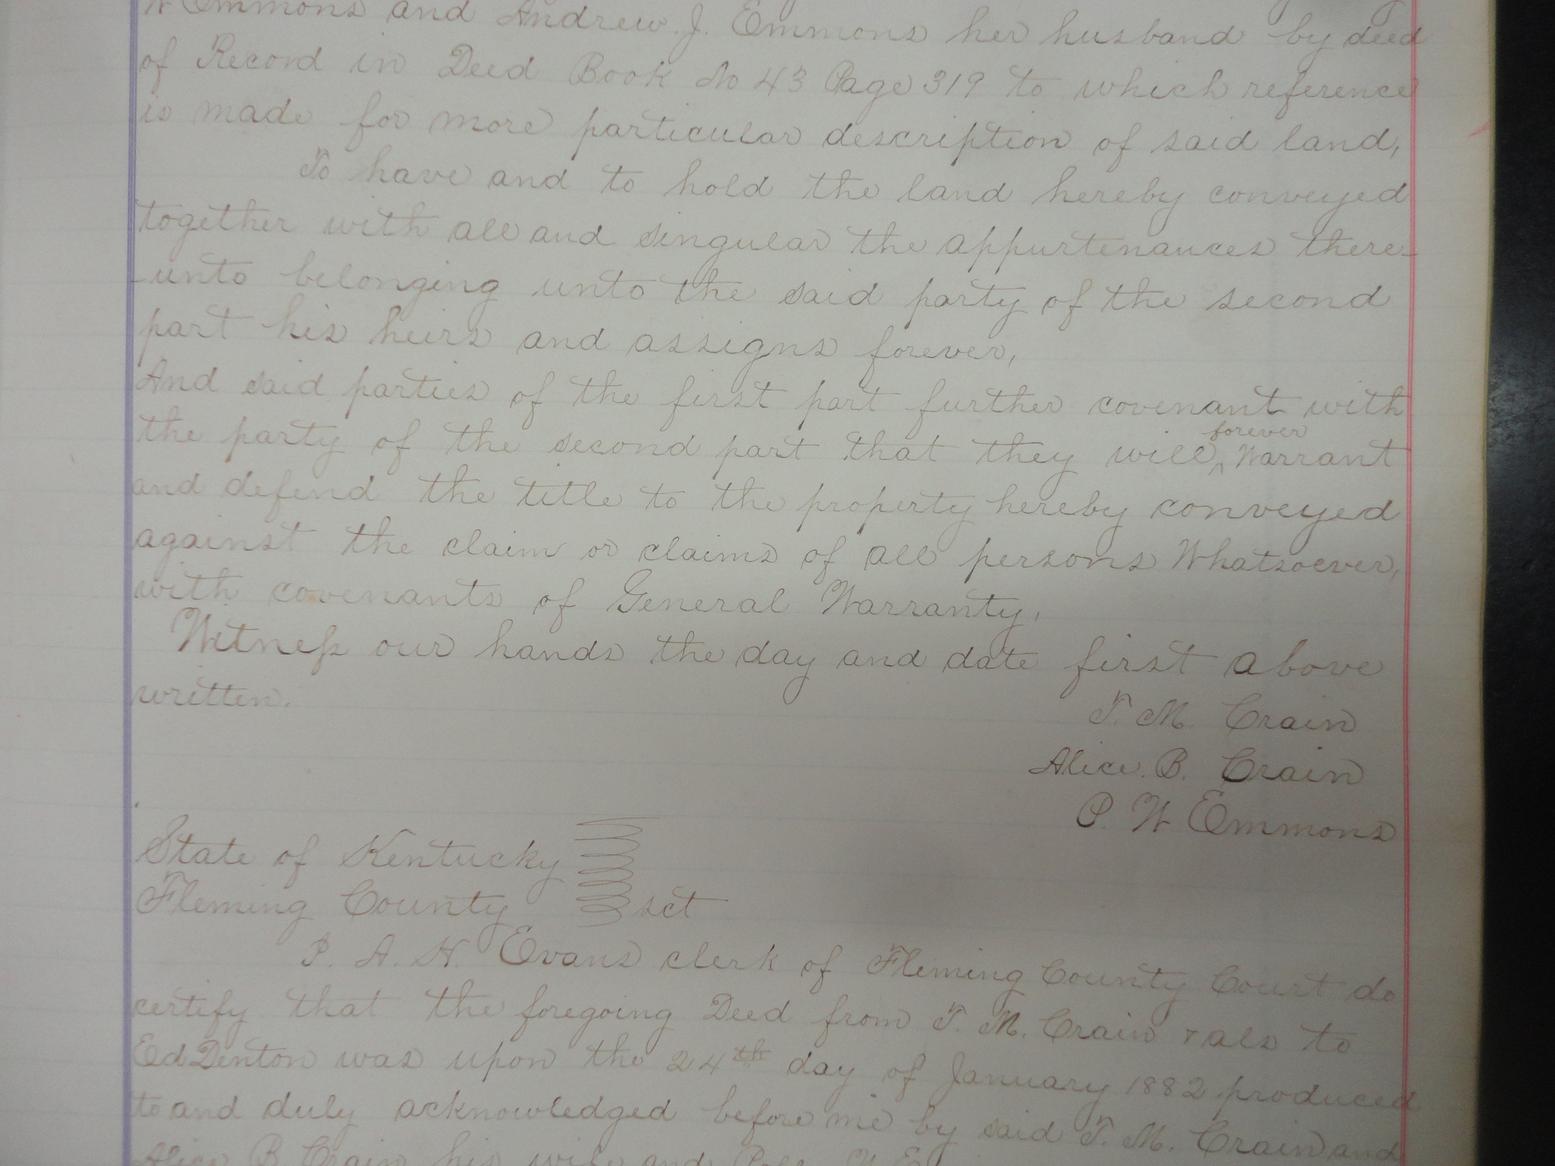 W Emmons and Andrew. J. Emmons her husband by deed
of Record in Deed Book No 43 Page 319 to which reference
is made for more particular description of said land,
To have and to hold the land hereby conveyed
together with all and singular the appurtenances there-
-unto belonging unto the said party of the second
part his heirs and assigns forever,
And said parties of the first part further covenant with
the party of the second part that they will ^forever Warrant
and defend the title to the property hereby conveyed
against the claim or claims of all persons Whatsoever,
with covenants of General Warranty,
Witneſs our hands the day and date first above
written.
T. M. Crain
Alice. B. Crain
P. W Emmons
State of Kentucky
Fleming County sct
I. A. H. Evans clerk of Fleming County Court do
certify that the foregoing Deed from T. M. Crain & als to
Ed Denton was upon the 24th day of January 1882 produced
to and duly acknowledged before me by said T. M. Crain and
Alice B Crain his wife and